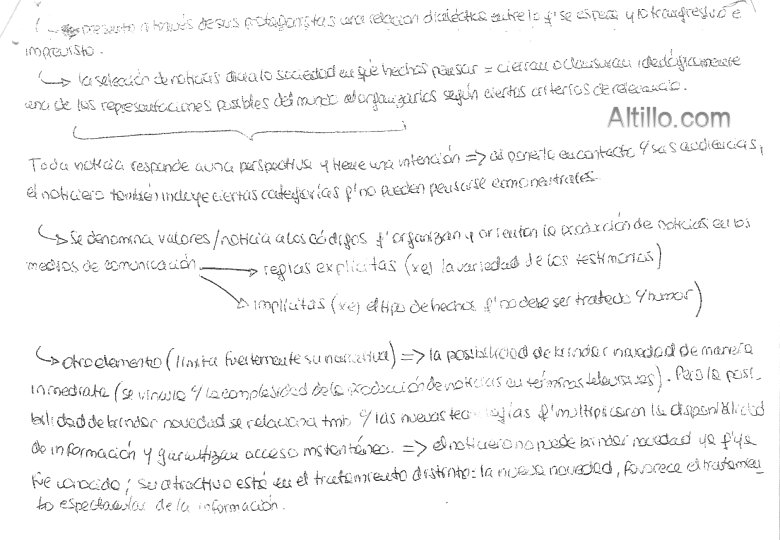 presenta a través de sus protagonistas una relación dialéctica entre lo q' se espera y lo transgresivo e
imprevisto.
la selección de noticias dice a la sociedad en qué hechos pensar = cierran o clausuran ideológicamente
una de las representaciones posibles del mundo al organizarlas según ciertos criterios de relevancia.
Altillo.com
Toda noticia responde a una perspectiva y tiene una intención => al ponerla en contacto c/ sus audiencias,
el noticiero también incluye ciertas categorías q' no pueden pensarse como neutrales.
Se denomina valores/noticia a los códigos q' organizan y orientan la producción de noticias en los
medios de comunicación
reglas explícitas (xej la variedad de los testimonios)
implícitas (xej el tipo de hechos q' no debe ser tratado c/ humor)
otro elemento (limita fuertemente su narrativa) => la posibilidad de brindar novedad de manera
inmediata (se vincula c/ la complejidad de la producción de noticias en términos televisivos). Pero la posi-
bilidad de brindar novedad se relaciona tmb c/ las nuevas tecnologías q' multiplicaron la disponibilidad
de información y garantizan acceso instantáneo. => el noticiero no puede brindar novedad ya q' ya
fue conocido; su atractivo está en el tratamiento distinto: la nueva novedad, favorece el tratamien-
to espectacular de la información.